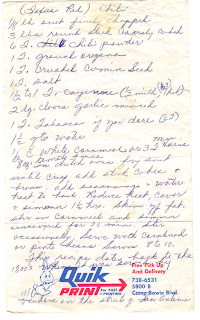 (Texas Red) Chili
1/2 lb suet finely chopped
3 lbs round steak coarsely cubed
6 T. chili powder
1 T. ground oregano
1 T. crushed cumin seed
1 T. salt
1/2 to 1 T. cayenne
2 lg. cloves garlic minced
1 T. Tabasco if you dare
1 1/2 qts water
1/2 C White Cornmeal or
fry suet
until crisp add steak cubes &
brown add seasonings & water
heat to boil. Reduce heat, cover
& simmer 1 1/2 hrs. skim off fat.
stir in cornmeal and simmer
uncovered for 30 min. stir
occasionally. Serve with cornbread
or pinto beans serves 8 to 10.
This recipe dates back to the
1800's
Quik
PRINT
FAX PRINTING
Free Pick Up
And Delivery
738-6531
5800 B
Camp Bowie Blvd.
vendors on the streets of San Antonio